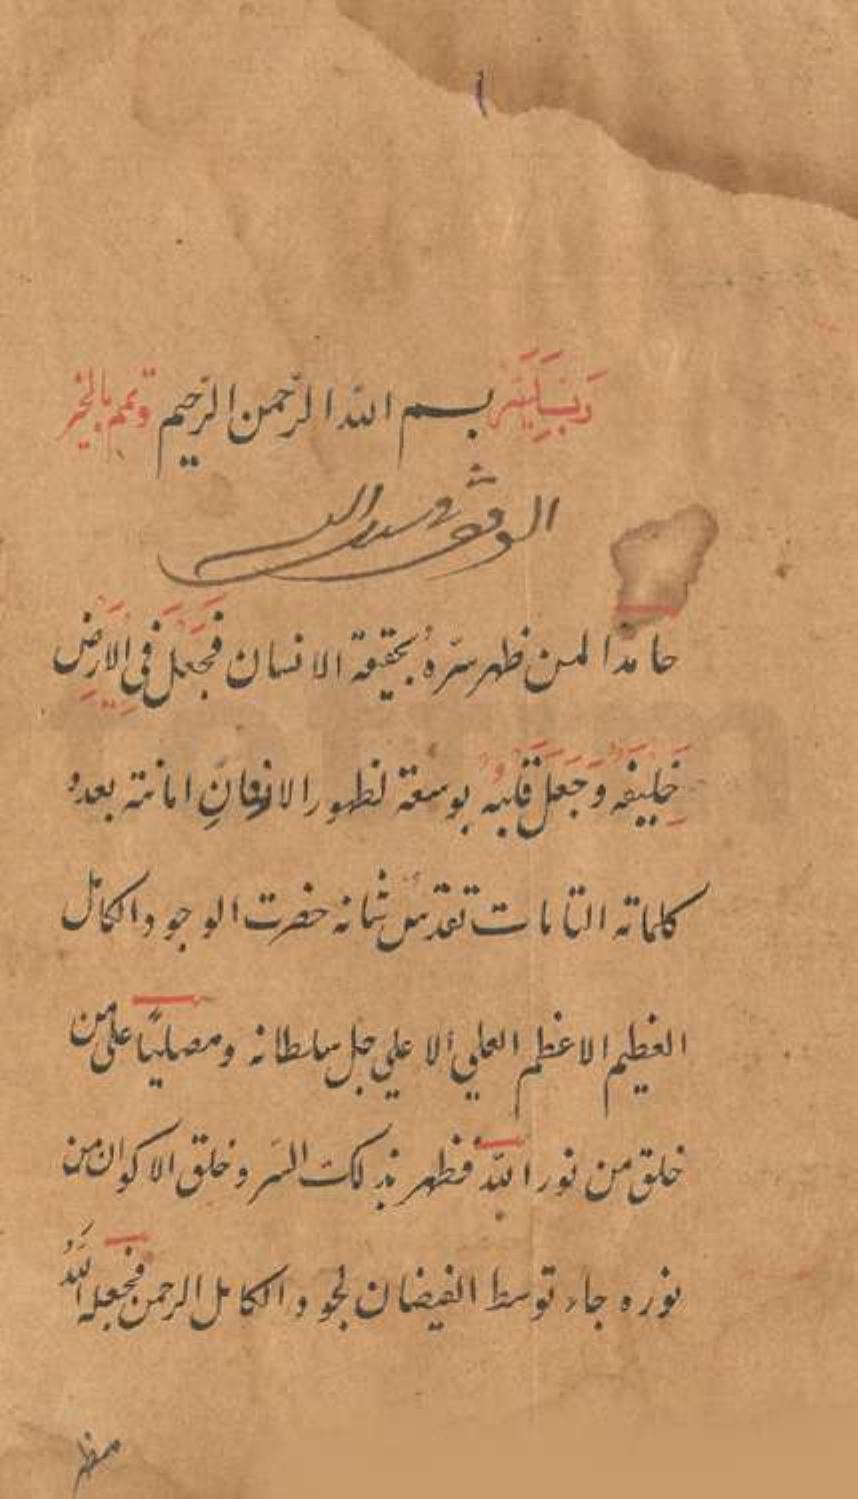 رَبِّ يَسِّرْ بسم الله الرّحمن الرّحيم وتمم بالخير
الوقف
حامدا لمن ظهر سرّهُ بحقيقة الانسان فَجعل فِي الارضِ
خَلِيفة وَجَعَلَ قلبه بوسعة لظهور امانته بعدد
كلماته التامات تقدس شانه حضرت الوجود الكامل
العظيم الاعظم العلي الاعلي جل سلطانه ومصليًا على من
خلق من نور الله فظهر بذلك السّر وخلق الاكوان من
نوره جاء توسط الفيضان لجود الكامل الرحمن فجعله اللهُ
مظهر